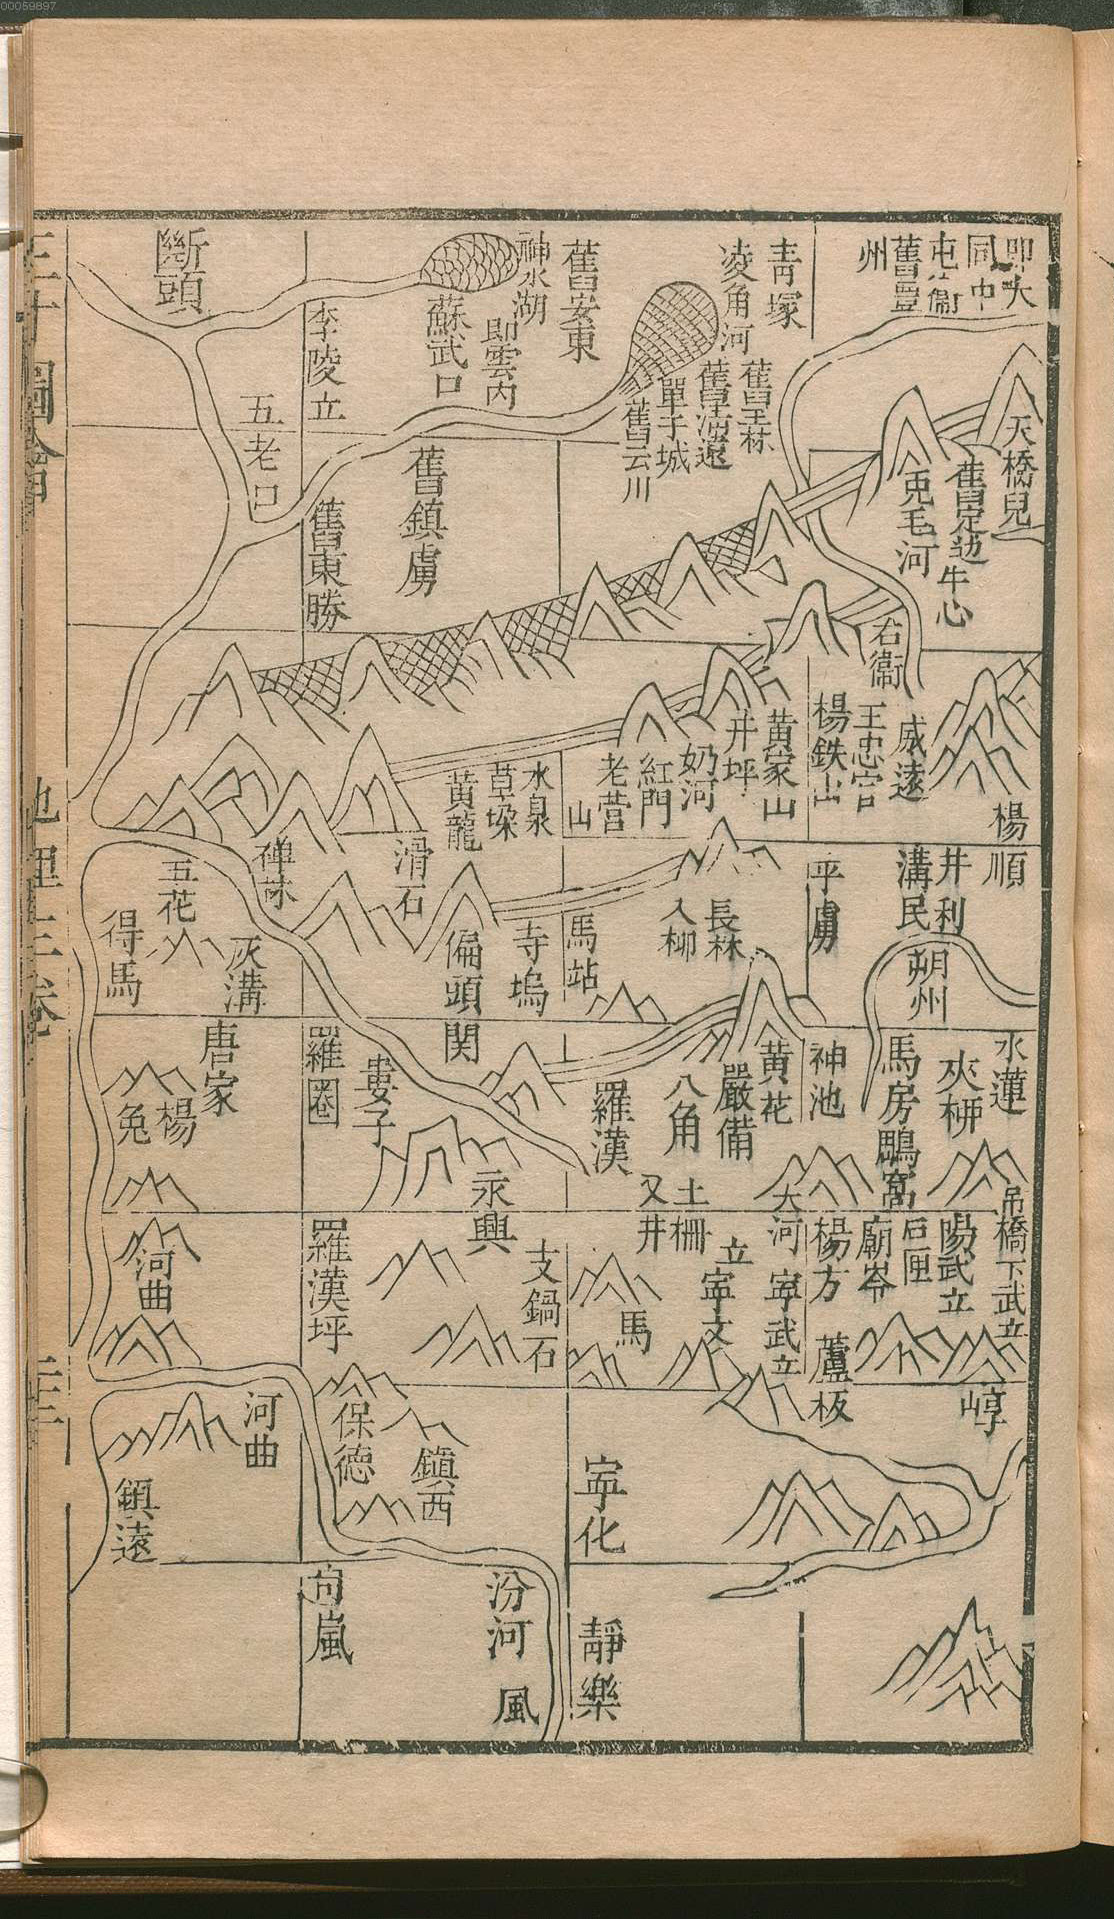 00059897
大
同中
屯衞
舊豐
州
青塚
凌角河
舊玉林
單于城
舊云川
舊安東
神水湖
即雲內
蘇武口
李陵立
斷頭
五老口
舊鎮虜
舊東勝
天橋兒
舊定边
牛心
兎毛河
右衞
威遠
王忠官
楊鉄山
黃家山
井坪
奶河
紅門
老營
山
水泉
草垛
黃龍
滑石
楊
順
井
溝
利
民
平虜
朔州
長林
入柳
馬站
寺塢
偏頭関
五花
得馬
灰溝
水蓮
夾柳
馬房
鵰窩
神池
黃花
嚴備
八角
羅漢
婁子
羅圈
唐家
楊兔
永興
土柵
又井
大河
吊橋
下武立
陽武立
石匣
廟岺
楊方
寕武立
立
寕文
馬
支鍋石
羅漢坪
河曲
蘆板
崞
保德
鎮西
河曲
鎮遠
寕化
靜樂
汾河
風
嵐
三才圖會
地理三卷
三十三